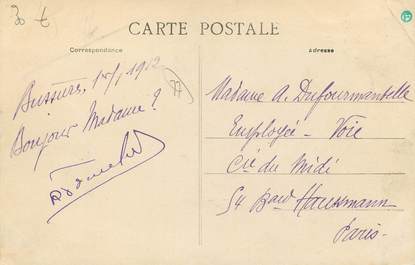 30 €
CARTE POSTALE
Correspondance
Adresse
1912
Bonjour Madame ?
Madame A. Dufourmantelle
Employée - Voie
Cie du Midi
54 Bard Haussmann
Paris -